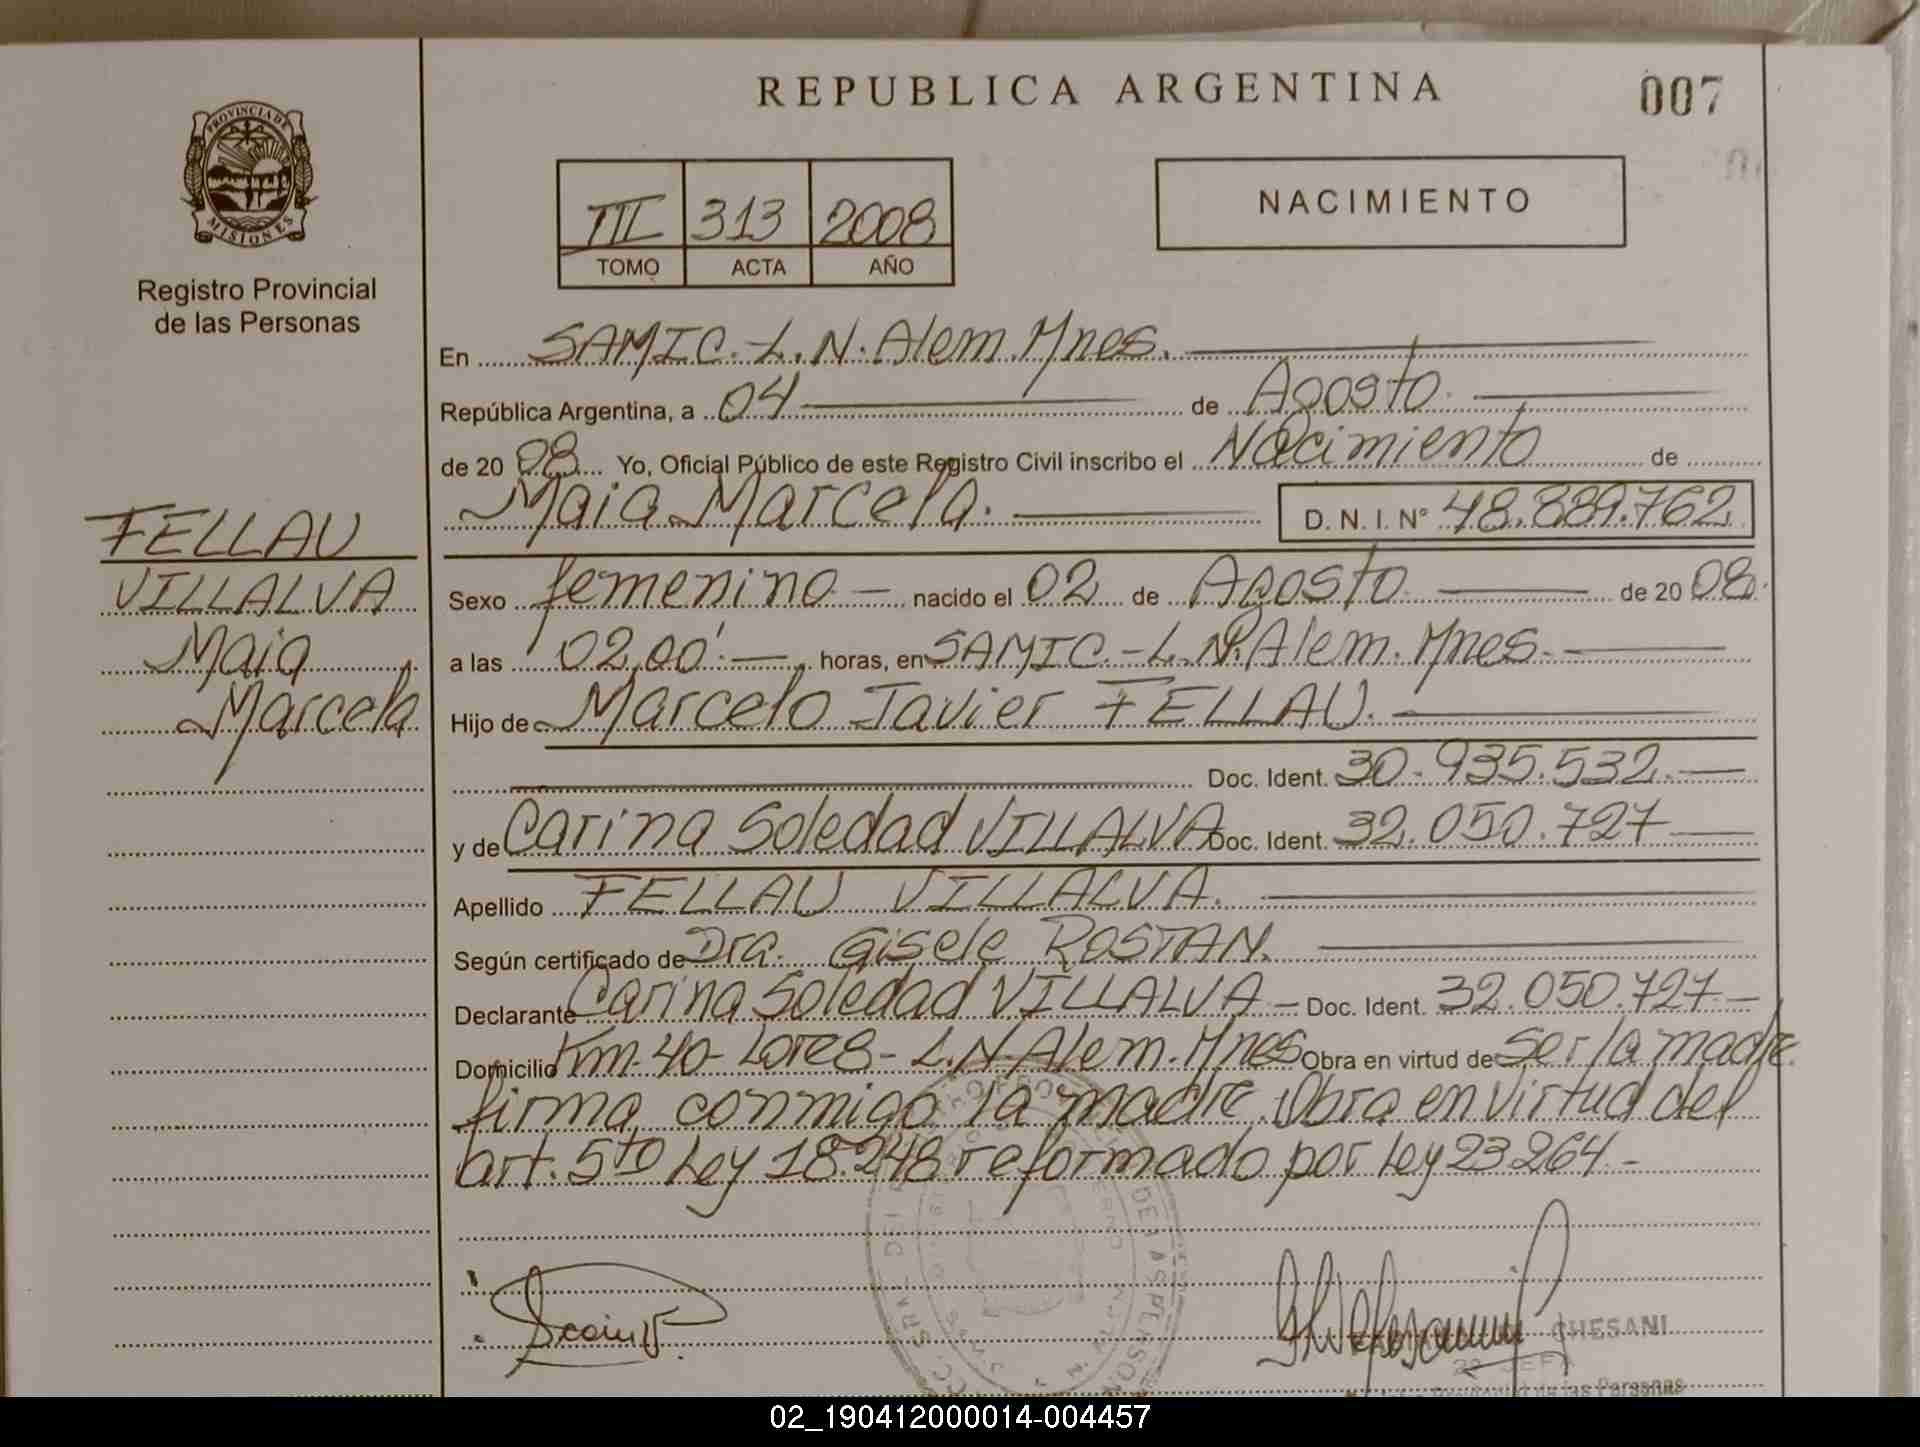 REPUBLICA ARGENTINA
007
PROVINCIA DE
MISIONES
Registro Provincial
de las Personas
III 313 2008
TOMO ACTA AÑO
NACIMIENTO
En SAMIC.-L.N.Alem.Mnes.
República Argentina, a 04 de Agosto.
de 20 08 Yo, Oficial Público de este Registro Civil inscribo el Nacimiento de
Maia Marcela. D. N. I. N° 48.889.762
FELLAU
VILLALVA
Maia
Marcela
Sexo femenino nacido el 02 de Agosto de 20 08.
a las 02,00' horas, en SAMIC.-L.N.Alem.Mnes.
Hijo de Marcelo Javier FELLAU.
Doc. Ident. 30.935.532.
y de Carina Soledad VILLALVA Doc. Ident. 32.050.727
Apellido FELLAU VILLALVA.
Según certificado de Dra. Gisele ROSTAN.
Declarante Carina Soledad VILLALVA - Doc. Ident. 32.050.727-
Domicilio Km-40-Lote8-L.N.Alem.Mnes Obra en virtud de Ser la madre.
firma conmigo la madre. Obra en virtud del
art. 5to Ley 18.248 reformado por Ley 23264-
CHESANI
JEFA
de las Personas
02_190412000014-004457